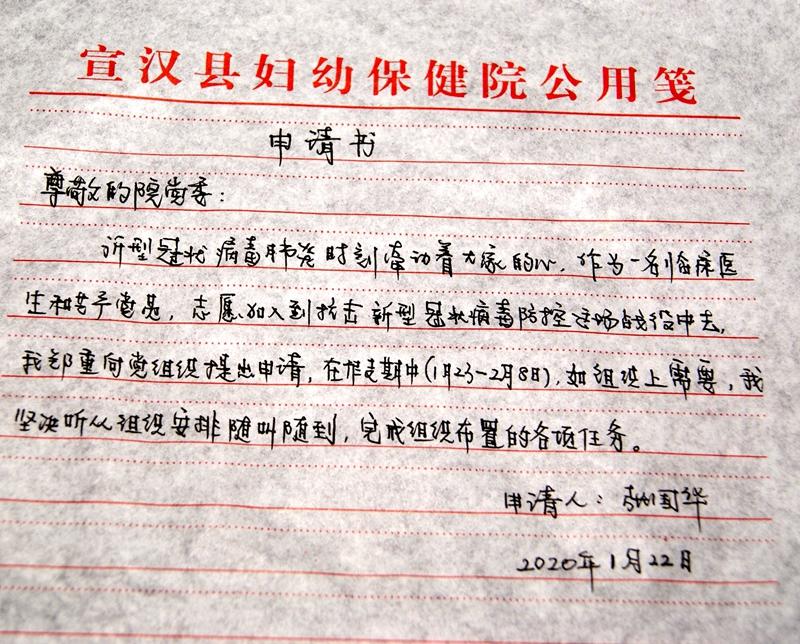 宣汉县妇幼保健院公用笺
申请书
尊敬的院党委：
新型冠状病毒肺炎时刻牵动着大家的心，作为一名临床医
生和共产党员，志愿加入到抗击新型冠状病毒防控这场战役中去，
我郑重向党组织提出申请，在休假期中（1月23-2月8日），如组织上需要，我
坚决听从组织安排随叫随到，完成组织布置的各项任务。
申请人：国华
2020年1月22日